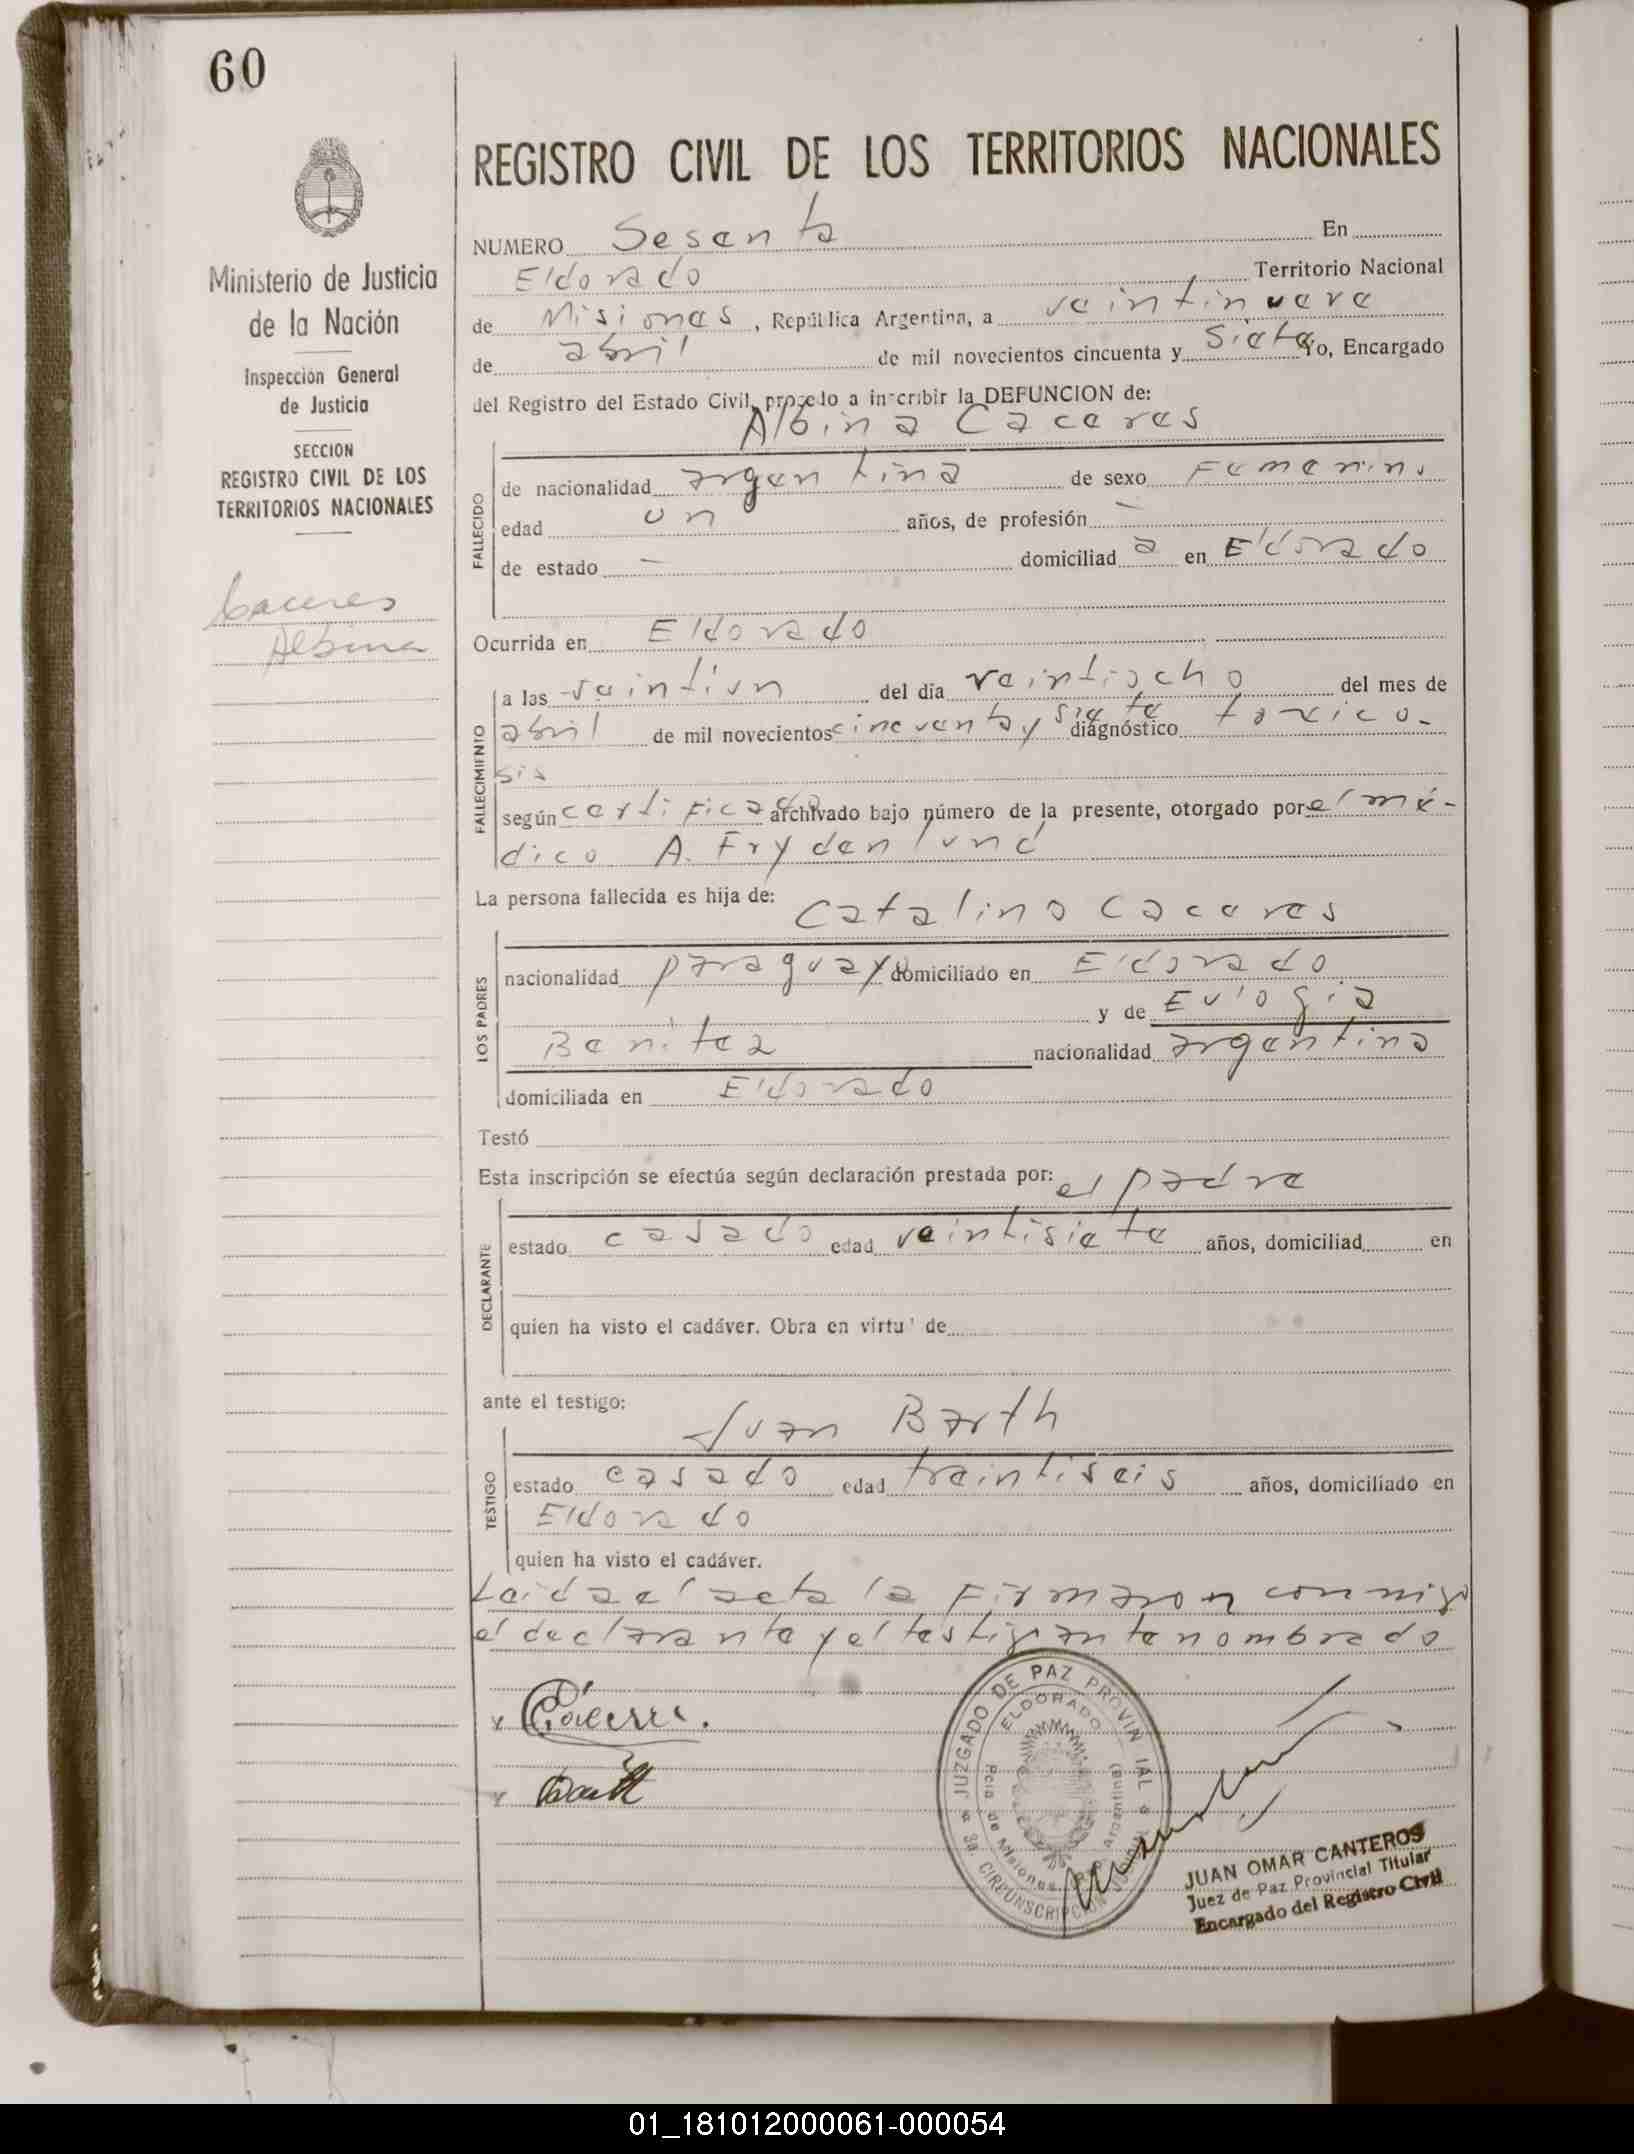 60
REGISTRO CIVIL DE LOS TERRITORIOS NACIONALES
Ministerio de Justicia
de la Nación
Inspección General
de Justicia
SECCION
REGISTRO CIVIL DE LOS
TERRITORIOS NACIONALES
Caceres
Albina
NUMERO Sesenta En
Eldorado Territorio Nacional
de Misiones, República Argentina, a veintinueve
de abril de mil novecientos cincuenta y siete Yo, Encargado
del Registro del Estado Civil, procedo a inscribir la DEFUNCION de:
Albina Caceres
FALLECIDO
de nacionalidad argentina de sexo Femenino
edad un años, de profesión —
de estado — domiciliad a en Eldorado
Ocurrida en Eldorado
FALLECIMIENTO
a las veintiun del día veintiocho del mes de
abril de mil novecientos cincuenta y siete diagnóstico toxico-
sis
según certificado archivado bajo número de la presente, otorgado por el mé-
dico A. Frydenlund
La persona fallecida es hija de: Catalino Caceres
LOS PADRES
nacionalidad paraguayo domiciliado en Eldorado
y de Eulogia
Benitez nacionalidad argentina
domiciliada en Eldorado
Testó
Esta inscripción se efectúa según declaración prestada por: el padre
DECLARANTE
estado casado edad veintisiete años, domiciliad en
quien ha visto el cadáver. Obra en virtu' de
ante el testigo: Juan Barth
TESTIGO
estado casado edad treintiseis años, domiciliado en
Eldorado
quien ha visto el cadáver.
Leida el acta la Firmaron conmigo
el declarante y el testigo antenombrado
x Cáceres.
x Barth
JUZGADO DE PAZ PROVINCIAL
3a. CIRCUNSCRIPCION JUDICIAL
ELDORADO
Pcia de Misiones
JUAN OMAR CANTEROS
Juez de Paz Provincial Titular
Encargado del Registro Civil
01_181012000061-000054